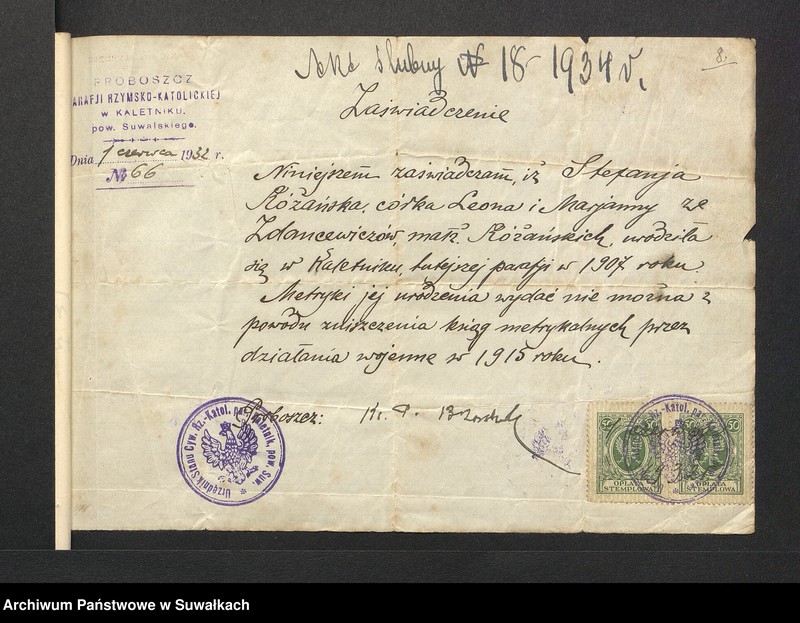 Akt ślubny № 18 - 1934 r.
8.
PROBOSZCZ
PARAFJI RZYMSKO-KATOLICKIEJ
W KALETNIKU.
pow. Suwalskiego.
Dnia 1 czerwca 1932 r.
№ 66
Zaświadczenie
Niniejszem zaświadczam, iż Stefanja
Różańska, córka Leona i Marjanny ze
Zdancewiczów, małż. Różańskich, urodziła
się w Kaletniku, tutejszej parafji w 1907 roku.
Metryki jej urodzenia wydać nie można z
powodu zniszczenia ksiąg metrykalnych przez
działania wojenne w 1915 roku.
Proboszcz: Ks. P.
Urzędnik Stanu Cyw. Rz.-Katol. par. Kaletnik, pow. Suw.
50
OPŁATA
STEMPLOWA
50
OPŁATA
STEMPLOWA
Archiwum Państwowe w Suwałkach